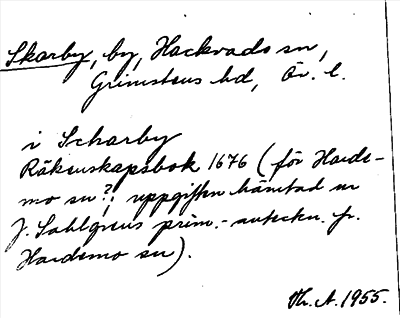 Skarby, by, Hackvads sn,
Grimstens hd, Ör. l.
i Scharby
Räkenskapsbok 1676 (för Hards-
mo sn?; uppgiften hämtad ur
J. Sahlgrens prim.-anteckn. fr.
Hardemo sn).
Vh. A. 1955.